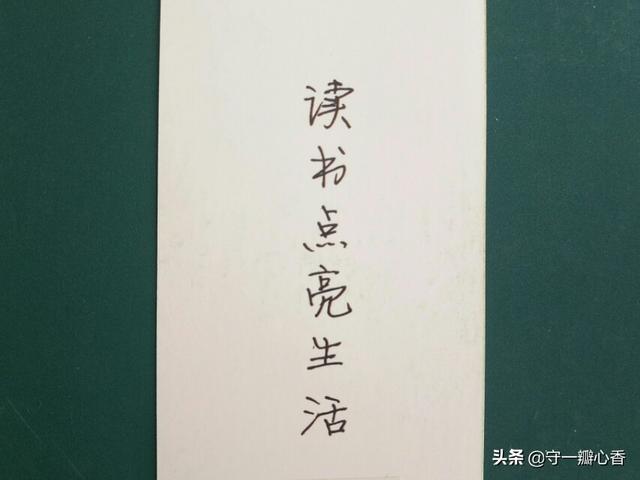 读书点亮生活
头条 @守一瓣心香